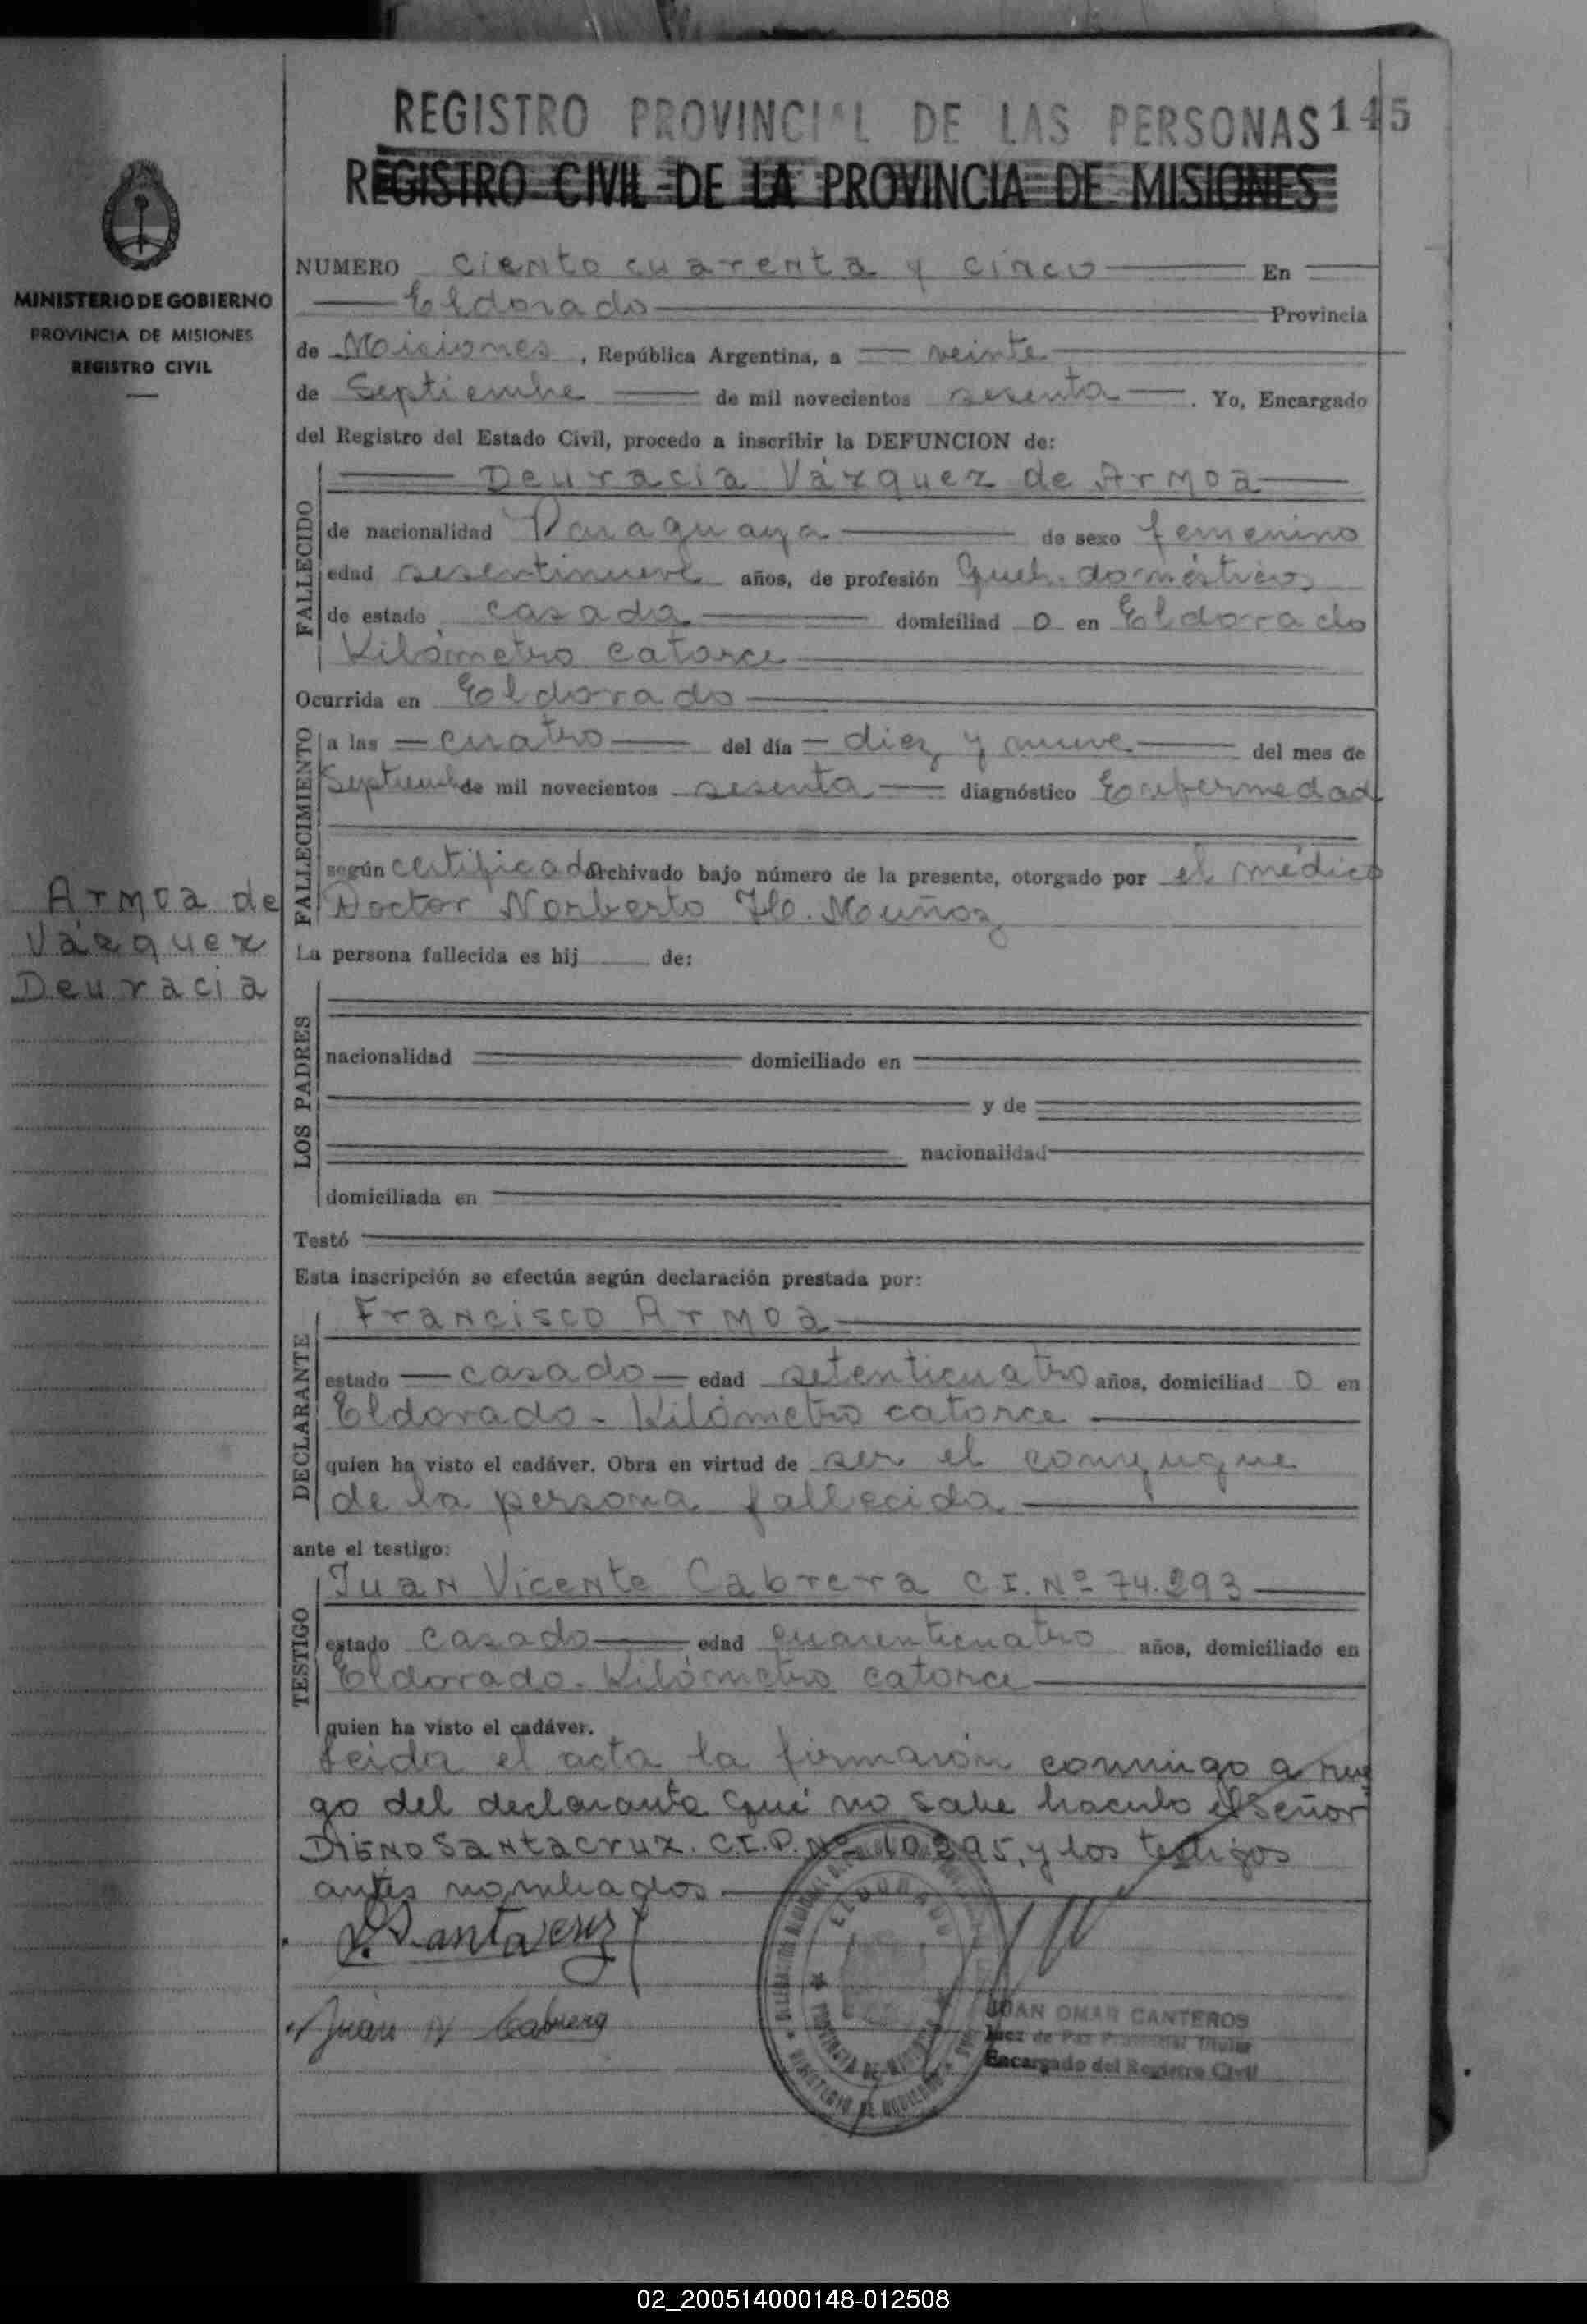 REGISTRO PROVINCIAL DE LAS PERSONAS 145
REGISTRO CIVIL DE LA PROVINCIA DE MISIONES
MINISTERIO DE GOBIERNO
PROVINCIA DE MISIONES
REGISTRO CIVIL
NUMERO ciento cuarenta y cinco En
Eldorado Provincia
de Misiones, República Argentina, a veinte
de Septiembre de mil novecientos sesenta. Yo, Encargado
del Registro del Estado Civil, procedo a inscribir la DEFUNCION de:
FALLECIDO
Deuracia Vázquez de Armoa
de nacionalidad Paraguaya de sexo femenino
edad sesentinueve años, de profesión Queh. domésticos
de estado casada domiciliad o en Eldorado
Kilómetro catorce
Ocurrida en Eldorado
FALLECIMIENTO
a las cuatro del día diez y nueve del mes de
Septiemb de mil novecientos sesenta diagnóstico Enfermedad
según certificado archivado bajo número de la presente, otorgado por el médico
Doctor Norberto H. Muñoz
Armoa de
Vázquez
Deuracia
La persona fallecida es hij de:
LOS PADRES
nacionalidad domiciliado en
y de
nacionalidad
domiciliada en
Testó
Esta inscripción se efectúa según declaración prestada por:
DECLARANTE
Francisco Armoa
estado casado edad setenticuatro años, domiciliad o en
Eldorado - Kilómetro catorce
quien ha visto el cadáver. Obra en virtud de ser el conyugue
de la persona fallecida
ante el testigo:
TESTIGO
Juan Vicente Cabrera C.I. Nº 74.293
estado casado edad cuarenticuatro años, domiciliado en
Eldorado. Kilómetro catorce
quien ha visto el cadáver.
Leida el acta la firmarón conmigo a rue
go del declarante que no sabe hacerlo el señor
Santacruz. C.I.P. Nº 10.295, y los testigos
antes nombrados
Santacruz
Juan V Cabrera
ELDORADO
PROVINCIA DE MISIONES
MINISTERIO DE GOBIERNO
JUAN OMAR CANTEROS
Juez de Paz Provincial Titular
Encargado del Registro Civil
02_200514000148-012508